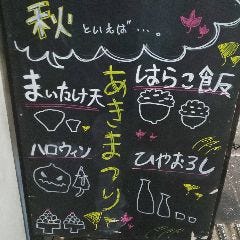 秋といえば…。
はらこ飯
あきまつり
まいたけ天
ハロウィン
ひやおろし